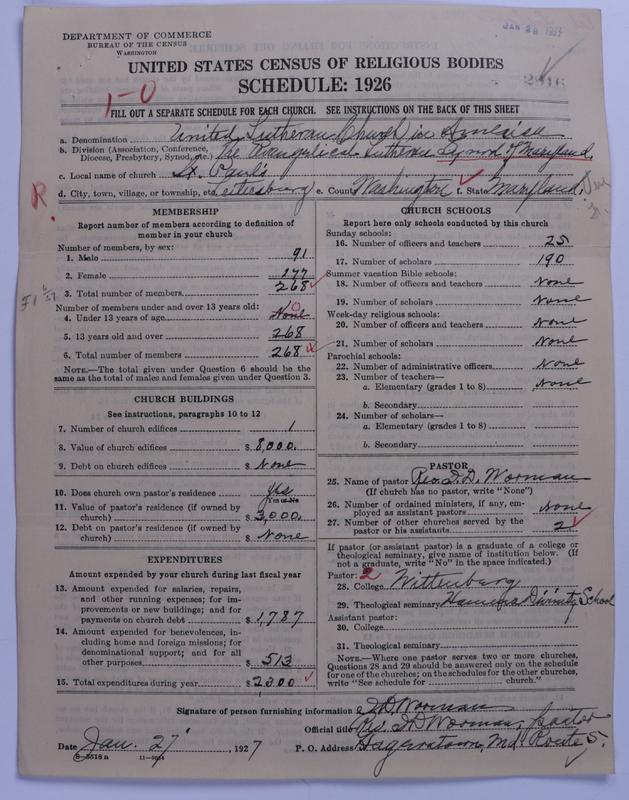 DEPARTMENT OF COMMERCE
BUREAU OF THE CENSUS
WASHINGTON
JAN 28 1927
UNITED STATES CENSUS OF RELIGIOUS BODIES
SCHEDULE: 1926
1-0
FILL OUT A SEPARATE SCHEDULE FOR EACH CHURCH. SEE INSTRUCTIONS ON THE BACK OF THIS SHEET
a. Denomination United Lutheran Church in America
b. Division (Association, Conference, Diocese, Presbytery, Synod, etc.) The Evangelical Lutheran Synod of Maryland.
c. Local name of church St. Paul's
d. City, town, village, or township, etc. Leitersburg e. County Washington f. State Maryland.
R.
MEMBERSHIP
Report number of members according to definition of
member in your church
Number of members, by sex:
1. Male 91
2. Female 177
3. Total number of members 268
Number of members under and over 13 years old:
4. Under 13 years of age None 0
5. 13 years old and over 268
6. Total number of members 268
NOTE.—The total given under Question 6 should be
same as the total of males and females given under Question 3.
CHURCH BUILDINGS
See instructions, paragraphs 10 to 12
7. Number of church edifices 1
8. Value of church edifices $ 8,000.
9. Debt on church edifices $ None
10. Does church own pastor's residence yes
Yes or No
11. Value of pastor's residence (if owned by
church) $ 3,000.
12. Debt on pastor's residence (if owned by
church) $ None
EXPENDITURES
Amount expended by your church during last fiscal year
13. Amount expended for salaries, repairs,
and other running expenses; for im-
provements or new buildings; and for
payments on church debt $ 1,787
14. Amount expended for benevolences, in-
cluding home and foreign missions; for
denominational support; and for all
other purposes $ 513
15. Total expenditures during year $ 2300
CHURCH SCHOOLS
Report here only schools conducted by this church
Sunday schools:
16. Number of officers and teachers 25
17. Number of scholars 190
Summer vacation Bible schools:
18. Number of officers and teachers None
19. Number of scholars None
Week-day religious schools:
20. Number of officers and teachers None
21. Number of scholars None
Parochial schools:
22. Number of administrative officers None
23. Number of teachers—
a. Elementary (grades 1 to 8) None
b. Secondary
24. Number of scholars—
a. Elementary (grades 1 to 8)
b. Secondary
PASTOR
25. Name of pastor Rev. I. D. Worman
(If church has no pastor, write "None")
26. Number of ordained ministers, if any, em-
ployed as assistant pastors None
27. Number of other churches served by the
pastor or his assistants 2
If pastor (or assistant pastor) is a graduate of a college or
theological seminary, give name of institution below. (If
not a graduate, write "No" in the space indicated.)
Pastor: 2
28. College Wittenburg
29. Theological seminary Hamma Divinity School
Assistant pastor:
30. College
31. Theological seminary
NOTE.—Where one pastor serves two or more churches,
Questions 28 and 29 should be answered only on the schedule
for one of the churches; on the schedules for the other churches,
write "See schedule for church."
Signature of person furnishing information I D Worman
Official title Rev. I D Worman, pastor
Date Jan. 27, 1927 P. O. Address Hagerstown, Md. Route 5.
8-5518a 11-9054